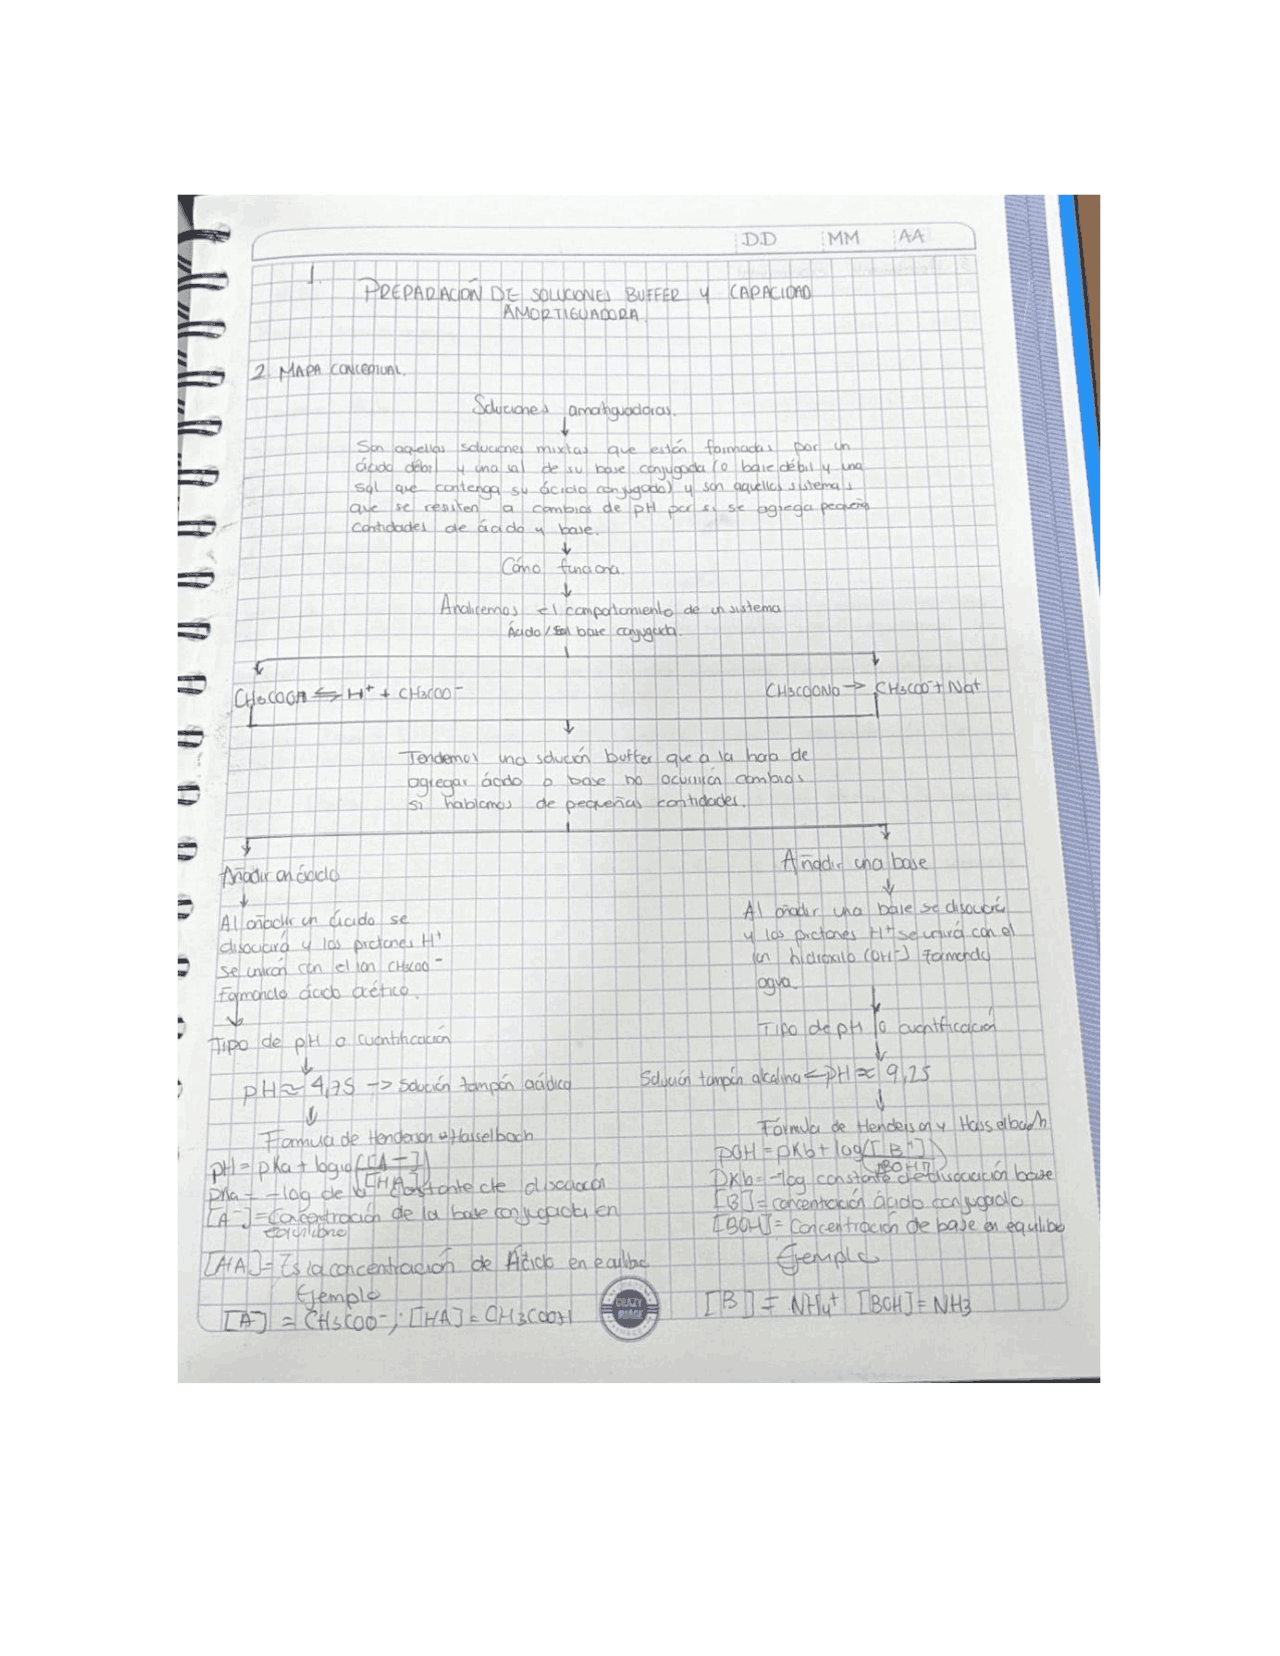 DD MM AA
1.
PREPARACIÓN DE SOLUCIONES BUFFER Y CAPACIDAD
AMORTIGUADORA.
2. MAPA CONCEPTUAL.
Soluciones amortiguadoras.
Son aquellas soluciones mixtas que están formadas por un
ácido débil y una sal de su base conjugada (o base débil y una
sal que contenga su ácido conjugado) y son aquellos sistemas
que se resiten a cambios de pH por si se agrega pequeñas
cantidades de ácido y base.
Cómo funciona.
Analicemos el comportamiento de un sistema
Ácido / base conjugada.
CH3COOH ⇆ H+ + CH3COO-
CH3COONa → CH3COO- + Na+
Tendemos una solución buffer que a la hora de
agregar ácido o base no ocurrirán cambios
si hablamos de pequeñas cantidades.
Añadir un ácido
Añadir una base
Al añadir un ácido se
disociará y los protones H+
se unirán con el ion CH3COO-
Formando ácido acético.
Al añadir una base se disociará
y los protones H+ se unirá con el
un hidróxilo (OH-) Formando
agua.
Tipo de pH o cuantificación
Tipo de pH o cuantificación
pH ≈ 4,75 -> Solución tampón acídica
Solución tampón alcalina <- pH ≈ 9,25
Formula de Henderson Hasselbach
pH = pKa + log10 ([A-]/[HA])
pKa = -log de la constante de disociación
[A-] = Concentración de la base conjugada en
equilibrio
[HA] = Es la concentración de Ácido en equilibrio
Ejemplo
[A-] = CH3COO-; [HA] = CH3COOH
Fórmula de Henderson y Hasselbach
pOH = pKb + log([B+]/[BOH])
pKb = -log constante de disociación base
[B] = concentración ácido conjugado
[BOH] = Concentración de base en equilibrio
Ejemplo
[B] = NH4+ [BOH] = NH3
CRAZY
IMAGE